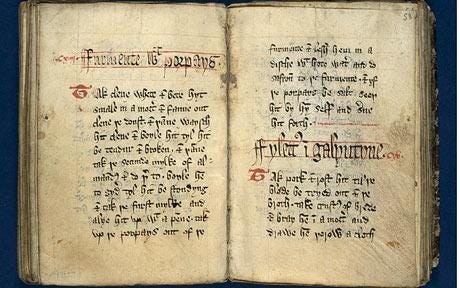 Furmente wt porpays
Tak clene whete & bete hyt
smale in a morter & fanne out
clene ye doust, & yanne waysch
hit clene & boyle hit tyl hit
be tendur & broken, & yanne
tak ye secunde mylke of al-
mandes & do yer to, boyle he
to gyd tyl hit be stondyng
& tak ye first mylke and
alye hit up wt a penne. tak
up ye porpays out of ye
58
furmente & lesh hem in a
disshe wt hote wat and do
safron to ye furmente. & yf
ye porpays be salt. seey
hit by hy self and sue
hit forth.
Fylett i galyntyne
Tak pork & rost hit til ye
blode be tryed out & ye
broth. take crustes of brede
& bray he i a morter and
drawe he yorow a cloth